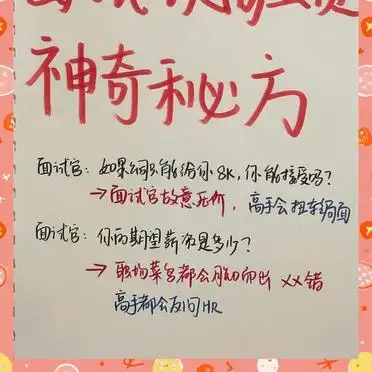 神奇秘方
面试官：如果公司只能给你8K，你能接受吗？
→面试官故意压价，高手会扭转局面
面试官：你的期望薪资是多少？
→职场菜鸟都会脱口而出 XX错
高手都会反问HR